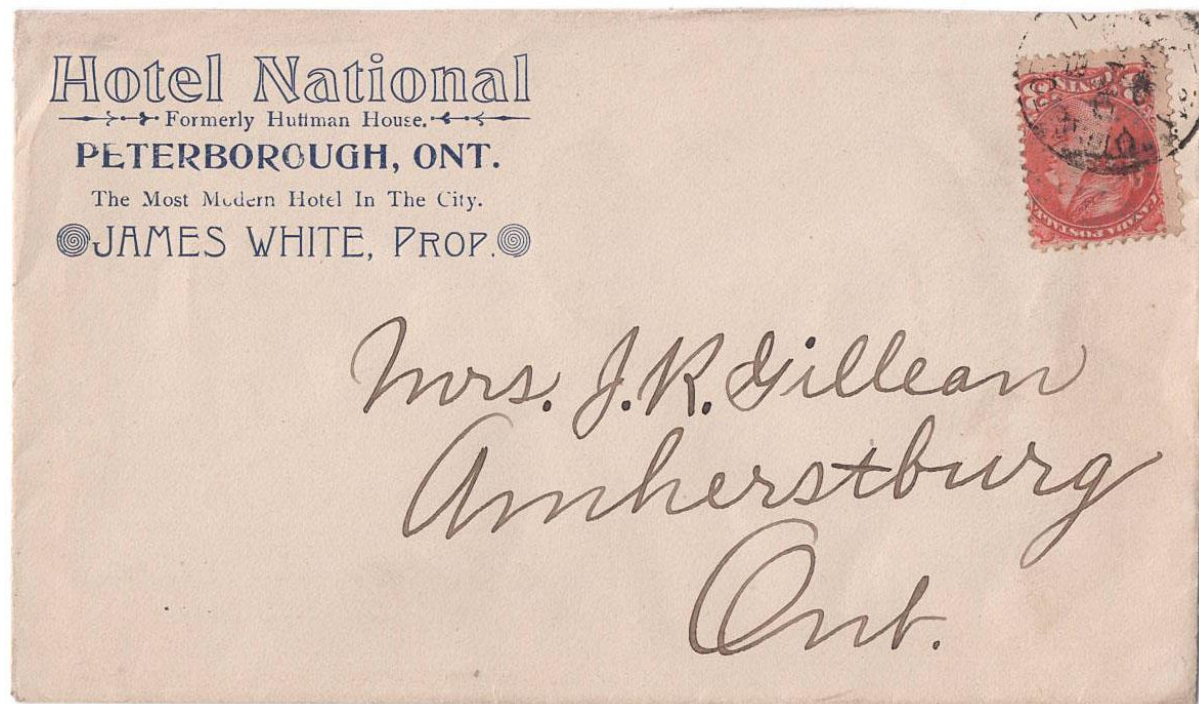 Hotel National
Formerly Huffman House.
PETERBOROUGH, ONT.
The Most Modern Hotel In The City.
JAMES WHITE, PROP.
CANADA POSTAGE
Mrs. J. R. Gillean
Amherstburg
Ont.